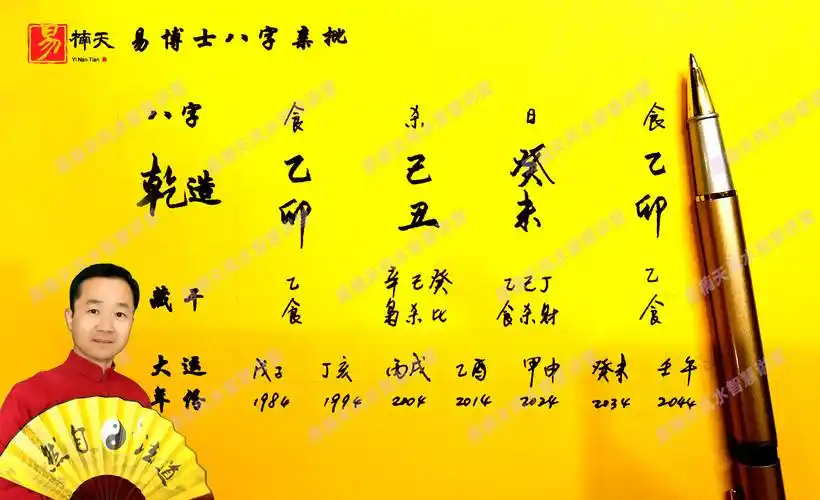 易
楠天
Yi Nan Tian
易博士八字亲批
八字 食 杀 日 食
乾造 乙卯 己丑 癸未 乙卯
藏干 乙 辛己癸 乙己丁 乙
食 枭杀比 食杀财 食
大运 戊子 丁亥 丙戌 乙酉 甲申 癸未 壬午
年份 1984 1994 2004 2014 2024 2034 2044
道法自然